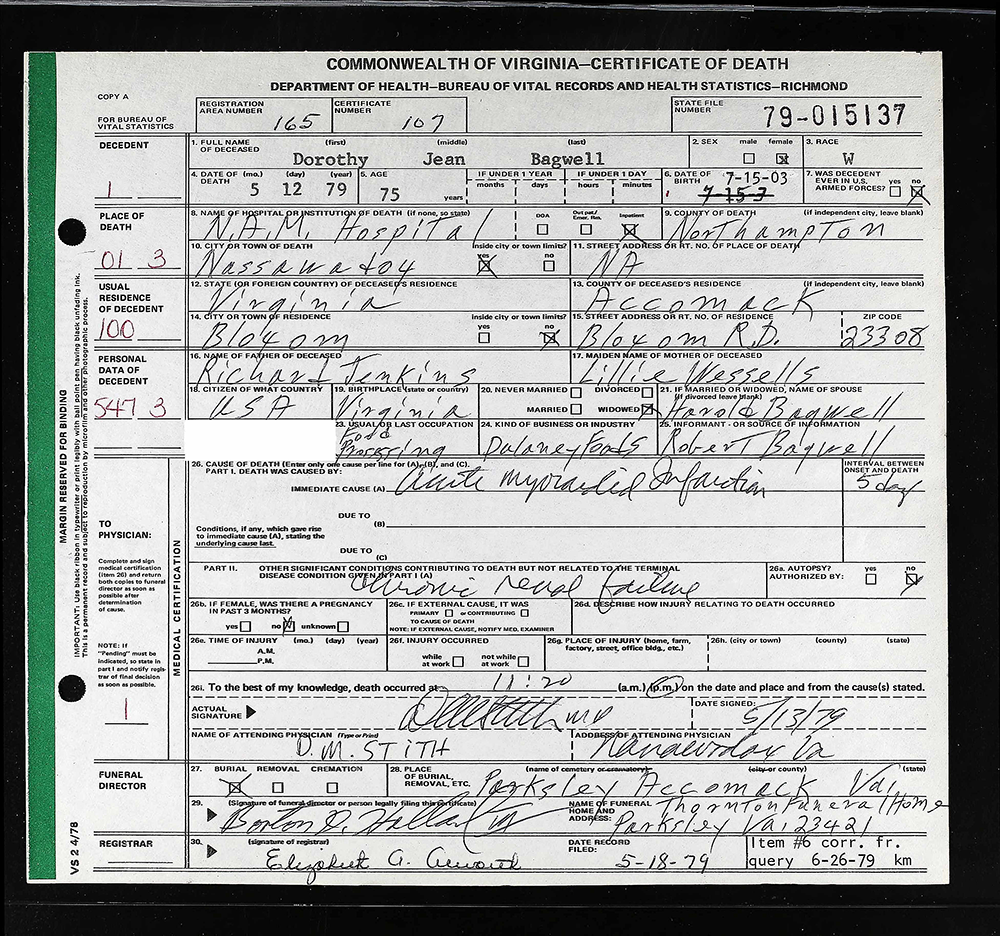 COMMONWEALTH OF VIRGINIA—CERTIFICATE OF DEATH
DEPARTMENT OF HEALTH—BUREAU OF VITAL RECORDS AND HEALTH STATISTICS—RICHMOND
COPY A
FOR BUREAU OF VITAL STATISTICS
REGISTRATION AREA NUMBER 165
CERTIFICATE NUMBER 107
STATE FILE NUMBER 79-015137
DECEDENT
1
1. FULL NAME OF DECEASED (first) (middle) (last)
Dorothy Jean Bagwell
2. SEX male female
3. RACE W
4. DATE OF DEATH (mo.) (day) (year)
5 12 79
5. AGE 75 years
IF UNDER 1 YEAR months days
IF UNDER 1 DAY hours minutes
6. DATE OF BIRTH 7-15-03
7-15-3
7. WAS DECEDENT EVER IN U.S. ARMED FORCES? yes no
PLACE OF DEATH
01 3
8. NAME OF HOSPITAL OR INSTITUTION OF DEATH (if none, so state)
N.A.M. Hospital
DOA Out pat/ Emer. Rm. Inpatient
9. COUNTY OF DEATH (if independent city, leave blank)
Northampton
10. CITY OR TOWN OF DEATH Inside city or town limits? yes no
Nassawadox
11. STREET ADDRESS OR RT. NO. OF PLACE OF DEATH
NA
USUAL RESIDENCE OF DECEDENT
100
12. STATE (OR FOREIGN COUNTRY) OF DECEASED'S RESIDENCE
Virginia
13. COUNTY OF DECEASED'S RESIDENCE (if independent city, leave blank)
Accomack
14. CITY OR TOWN OF RESIDENCE Inside city or town limits? yes no
Bloxom
15. STREET ADDRESS OR RT. NO. OF RESIDENCE ZIP CODE
Bloxom R.D. 23308
PERSONAL DATA OF DECEDENT
547 3
16. NAME OF FATHER OF DECEASED
Richard Jenkins
17. MAIDEN NAME OF MOTHER OF DECEASED
Lillie Wessells
18. CITIZEN OF WHAT COUNTRY
USA
19. BIRTHPLACE (state or country)
Virginia
20. NEVER MARRIED DIVORCED
MARRIED WIDOWED
21. IF MARRIED OR WIDOWED, NAME OF SPOUSE (if divorced leave blank)
Harold Bagwell
23. USUAL OR LAST OCCUPATION
Food Processing
24. KIND OF BUSINESS OR INDUSTRY
Dulaney Foods
25. INFORMANT - OR SOURCE OF INFORMATION
Robert Bagwell
MARGIN RESERVED FOR BINDING
IMPORTANT: Use black ribbon in typewriter or print legibly with ball point pen having black unfading ink.
This is a permanent record and subject to reproduction by microfilm and other photographic process.
TO PHYSICIAN:
Complete and sign medical certification (item 26) and return both copies to funeral director as soon as possible after determination of cause.
NOTE: If "Pending" must be indicated, so state in part I and notify registrar of final decision as soon as possible.
1
MEDICAL CERTIFICATION
26. CAUSE OF DEATH (Enter only one cause per line for (A), (B), and (C).
PART I. DEATH WAS CAUSED BY:
IMMEDIATE CAUSE (A) Acute myocardial Infarction
INTERVAL BETWEEN ONSET AND DEATH
5 day
DUE TO (B)
Conditions, if any, which gave rise to immediate cause (A), stating the underlying cause last.
DUE TO (C)
PART II. OTHER SIGNIFICANT CONDITIONS CONTRIBUTING TO DEATH BUT NOT RELATED TO THE TERMINAL DISEASE CONDITION GIVEN IN PART I (A)
Chronic renal failure
26a. AUTOPSY? AUTHORIZED BY: yes no
26b. IF FEMALE, WAS THERE A PREGNANCY IN PAST 3 MONTHS?
yes no unknown
26c. IF EXTERNAL CAUSE, IT WAS
PRIMARY or CONTRIBUTING
TO CAUSE OF DEATH
NOTE: IF EXTERNAL CAUSE, NOTIFY MED. EXAMINER
26d. DESCRIBE HOW INJURY RELATING TO DEATH OCCURRED
26e. TIME OF INJURY (mo.) (day) (year)
A.M.
P.M.
26f. INJURY OCCURRED
while at work not while at work
26g. PLACE OF INJURY (home, farm, factory, street, office bldg., etc.)
26h. (city or town) (county) (state)
26i. To the best of my knowledge, death occurred at 11:20 (a.m.) (p.m.) on the date and place and from the cause(s) stated.
ACTUAL SIGNATURE MD
DATE SIGNED:
5/13/79
NAME OF ATTENDING PHYSICIAN (Type or Print)
D.M. STITH
ADDRESS OF ATTENDING PHYSICIAN
Va
FUNERAL DIRECTOR
27. BURIAL REMOVAL CREMATION
28. PLACE OF BURIAL, REMOVAL, ETC. (name of cemetery or crematory) (city or county) (state)
Parksley Accomack Va.
29. (Signature of funeral director or person legally filing this certificate)
NAME OF FUNERAL HOME AND ADDRESS:
Thornton Funeral Home
Parksley Va. 23421
REGISTRAR
30. (signature of registrar)
Elizabeth A.
DATE RECORD FILED:
5-18-79
Item #6 corr. fr.
query 6-26-79 km
VS 2 4/78